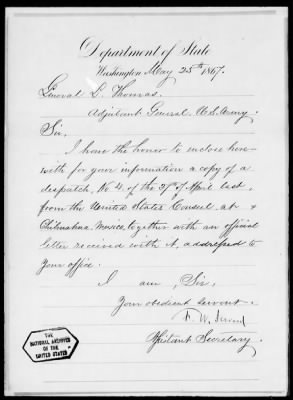 Department of State
Washington May 25th 1867.
General L. Thomas.
Adjutant General. U.S. Army.
Sir,
I have the honor to enclose here-
with for your information a copy of a
despatch, No 4. of the of April last,
from the United States Consul at
Chihuahua, Mexico, together with an official
letter received with it, addressed to
your office.
I am, Sir,
Your obedient servant.
F. W. Seward
Assistant Secretary.
THE
NATIONAL ARCHIVES
OF THE
UNITED STATES